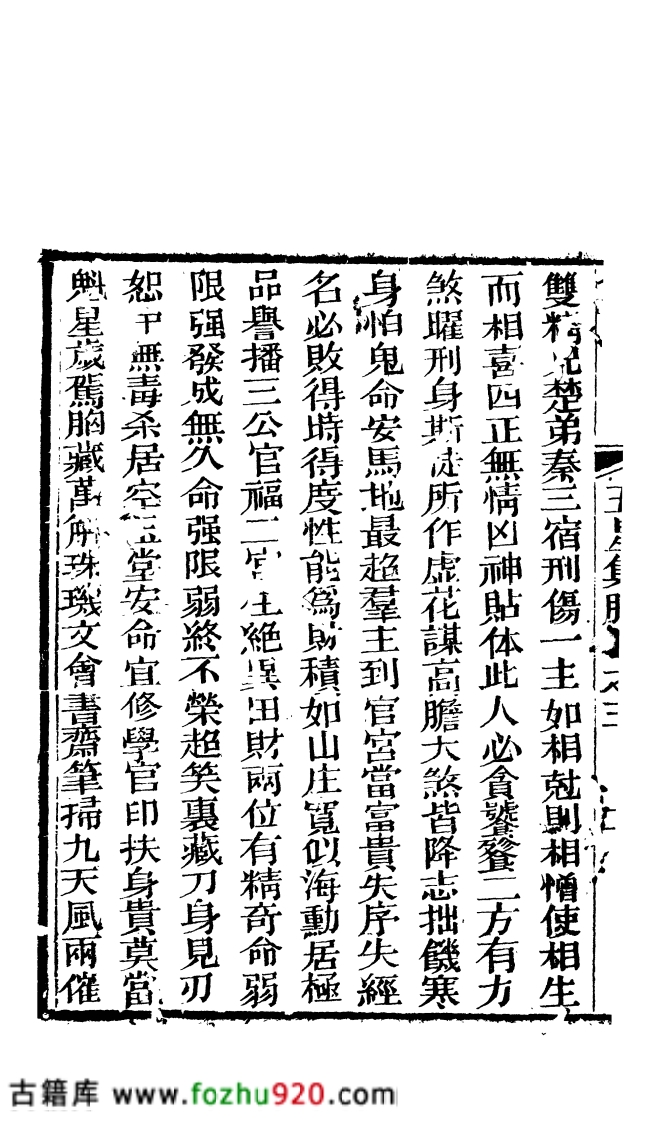 雙精兄楚弟秦三宿刑傷一主如相尅則相憎使相生
而相喜四正無情凶神貼体此人必貪饕餮二方有方
煞曜刑身斯徒所作虛花謀高膽大煞皆降志拙饑寒
身怕鬼命安馬地最超羣主到官宮當富貴失序失經
名必敗得時得度性能爲財積如山庄寬似海動居極
品譽播三公官福二宮生絶異田財兩位有精奇命弱
限强發成無久命强限弱終不榮超笑裏藏刀身見刃
恕中無毒杀居空玉堂安命宜修學官印扶身貴莫當
魁星歲駕胸藏萬斛珠璣文會書齋筆掃九天風兩催
古籍库 www.fozhu920.com